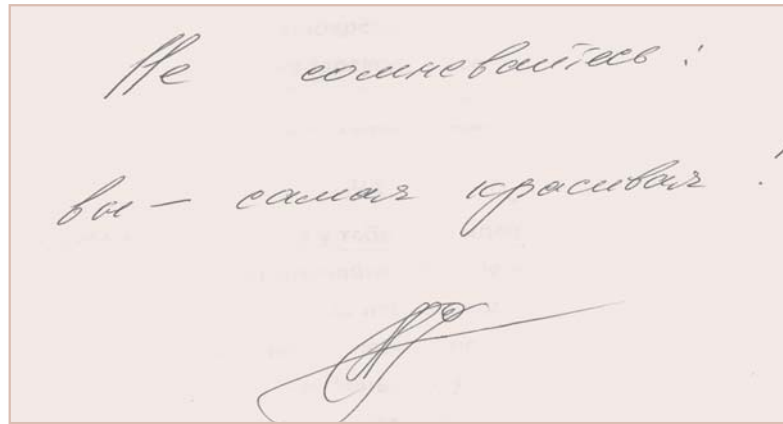 Не сомневайтесь:
вы — самая красивая!